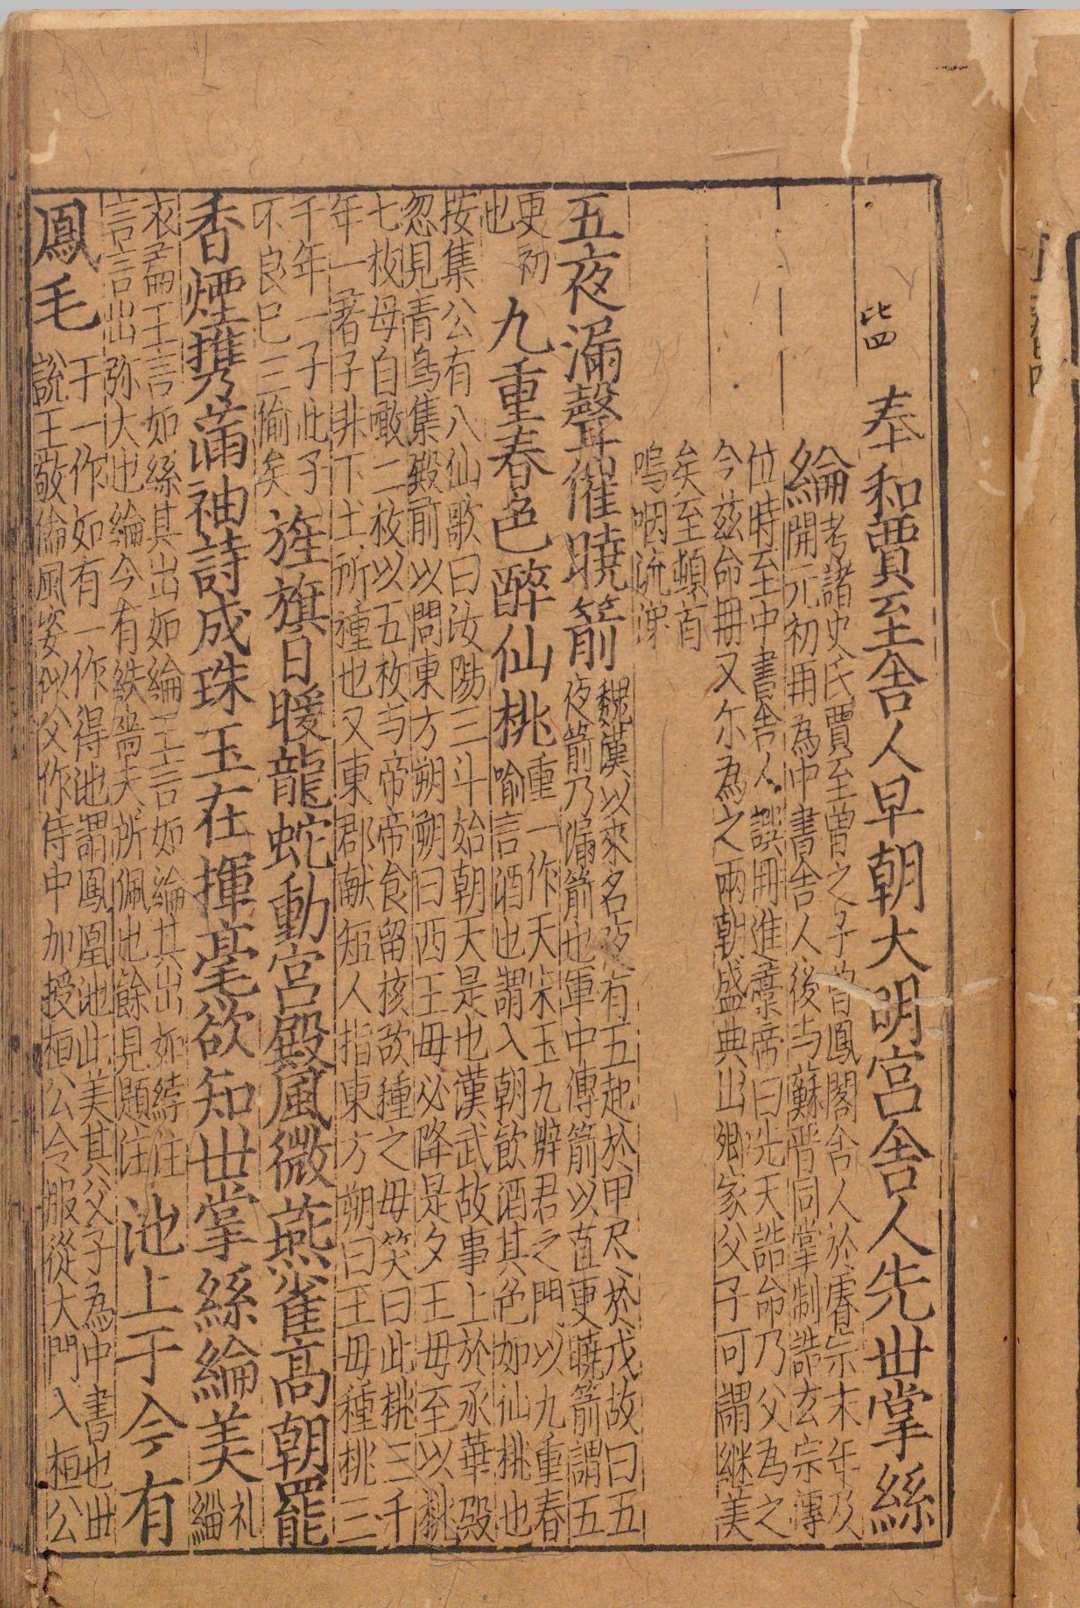 皆四
奉和賈至舎人早朝大明宮舎人先丗掌絲
綸
考諸史氏賈至曽之子曽鳳閣舎人於睿宗末年及
開元初再為中書舎人後与蘇晋同掌制誥玄宗傳
位時至中書舎人譔冊進藁帝曰先天誥命乃父為之
今兹命冊又尓為之兩朝盛典出卿家父子可謂継美
矣至頓首
嗚咽流涕
五夜漏聲催曉箭
魏漢以來名夜有五起於甲尽於戊故曰五
夜箭乃漏箭也軍中傳箭以直更曉箭謂五
更初
也
九重春色醉仙桃
重一作天宋玉九辯君之門以九重春
喻言酒也謂入朝飲酒其色如仙桃也
按集公有八仙歌曰汝陽三斗始朝天是也漢武故事上於承華殿
忽見青鳥集殿前以問東方朔朔曰西王毋必降是夕王毋至以桃
七枚母自噉二枚以五枚与帝帝食留核欲種之毋笑曰此桃三千
年一著子非下土所種也又東郡献短人指東方朔曰王毋種桃三
千年一子此子
不良已三偷矣
旌旗日暖龍蛇動宮殿風微燕雀髙朝罷
香煙携滿袖詩成珠玉在揮毫欲知丗掌絲綸美
礼
緇
衣篇王言如絲其出如綸王言如綸其出如綍注
言言出弥大也綸今有紩嗇夫所佩也餘見題注
池上于今有
鳳毛
于一作如有一作得池謂鳳凰池此美其父子為中書也丗
説王敬倫風姿似父作侍中加授桓公公服從大門入桓公